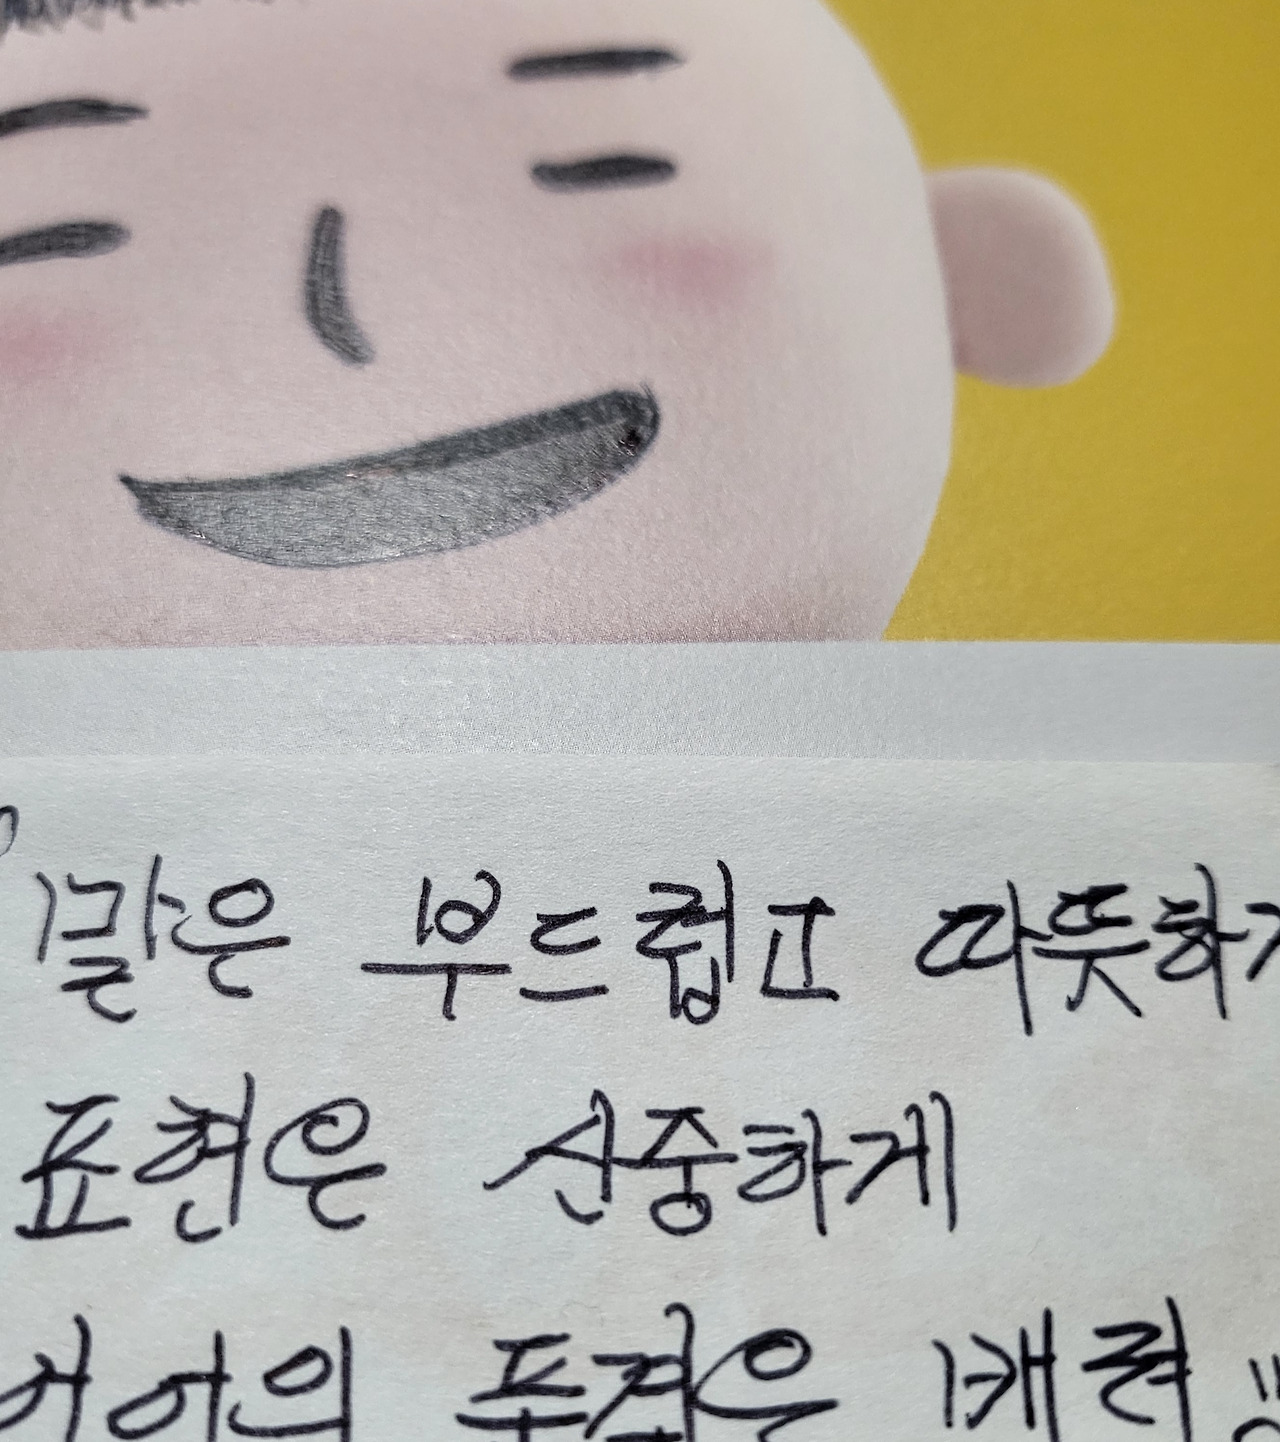 말은 부드럽고 따뜻하게
표현은 신중하게
언어의 품격은 배려